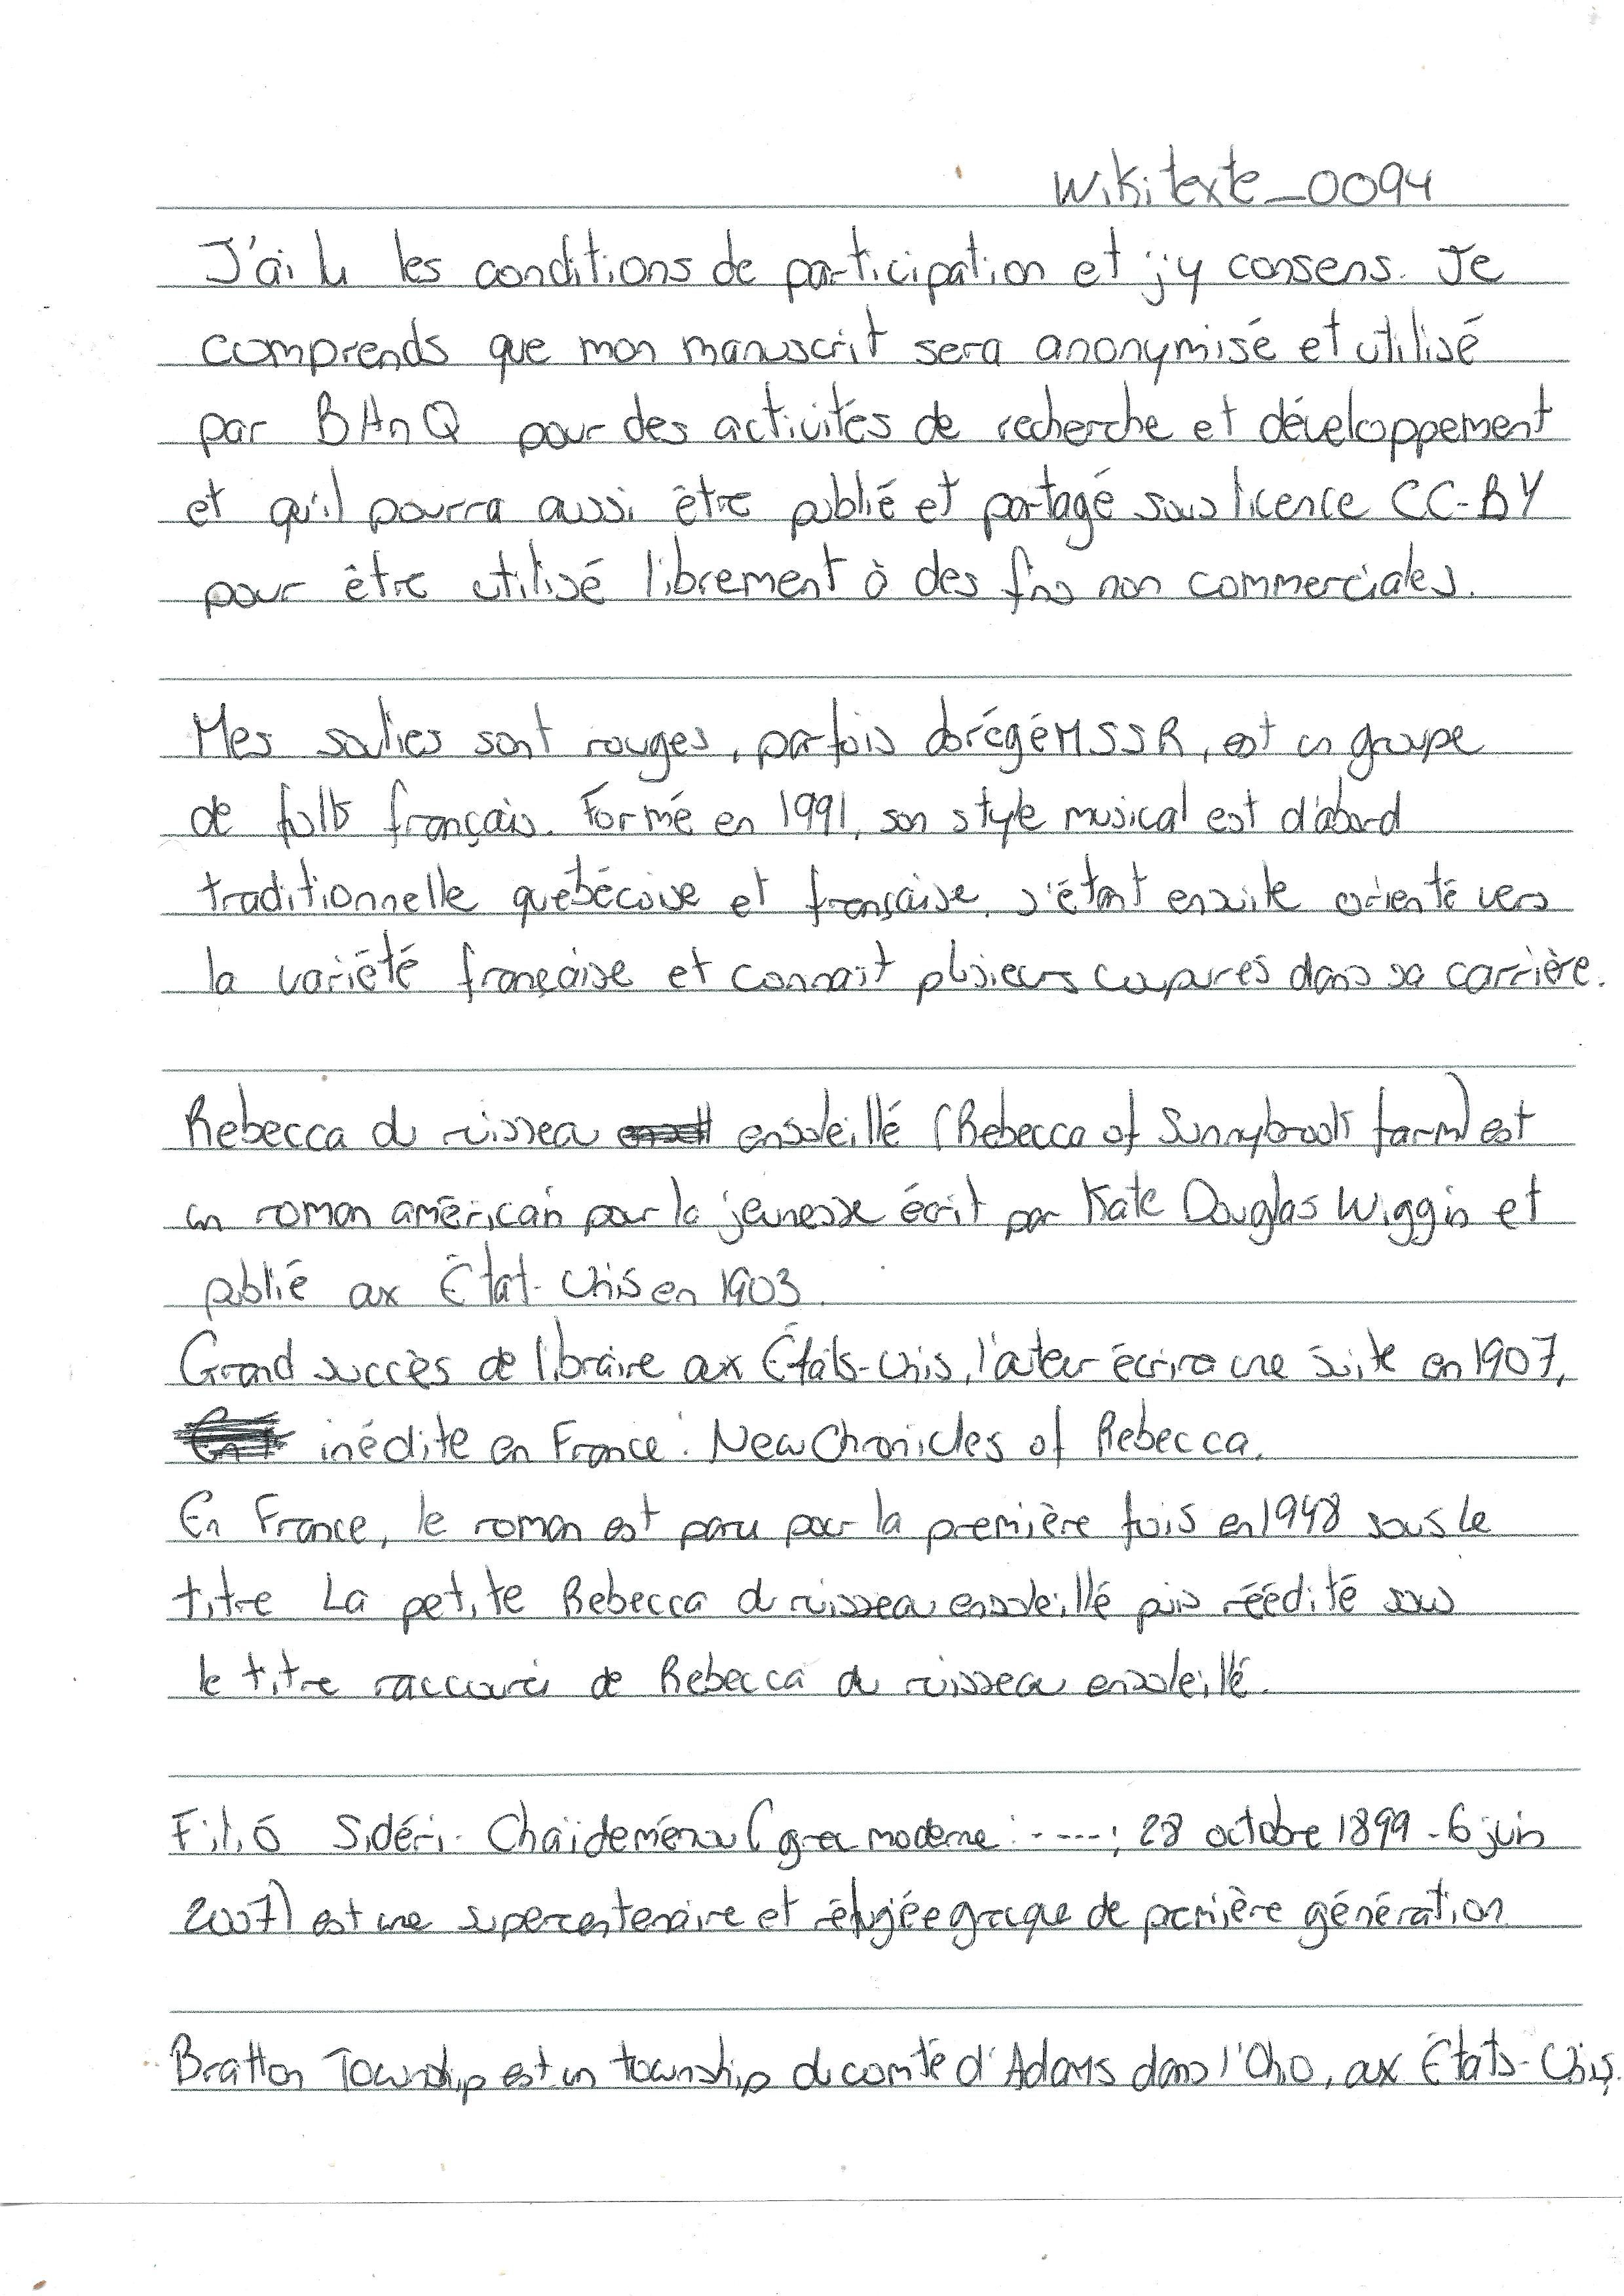 Wikitexte_0094
J'ai lu les conditions de participation et j'y consens. Je
comprends que mon manuscrit sera anonymisé et utilisé
par BAnQ pour des activités de recherche et développement
et qu'il pourra aussi être publié et partagé sous licence CC-BY
pour être utilisé librement à des fins non commerciales.
Mes souliers sont rouges, parfois abrégé MSSR, est un groupe
de folk français. Formé en 1991, son style musical est d'abord
traditionnelle québécoise et française, s'étant ensuite orienté vers
la variété française et connait plusieurs coupures dans sa carrière.
Rebecca du ruisseau ensoleillé (Rebecca of Sunnybrook farm) est
un roman américain pour la jeunesse écrit par Kate Douglas Wiggin et
publié aux État-Unis en 1903.
Grand succès de libraire aux États-Unis, l'auteur écrira une suite en 1907,
inédite en France : New Chronicles of Rebecca.
En France, le roman est paru pour la première fois en 1948 sous le
titre La petite Rebecca du ruisseau ensoleillé puis réédité sous
le titre raccourci de Rebecca du ruisseau ensoleillé.
Filió Sidéri- Chaïdeménou (grec moderne : ----; 28 octobre 1899 - 6 juin
2007) est une supercentenaire et réfugiée grecque de première génération
Bratton Township est un township du comté d'Adams dans l'Ohio, aux États-Unis.